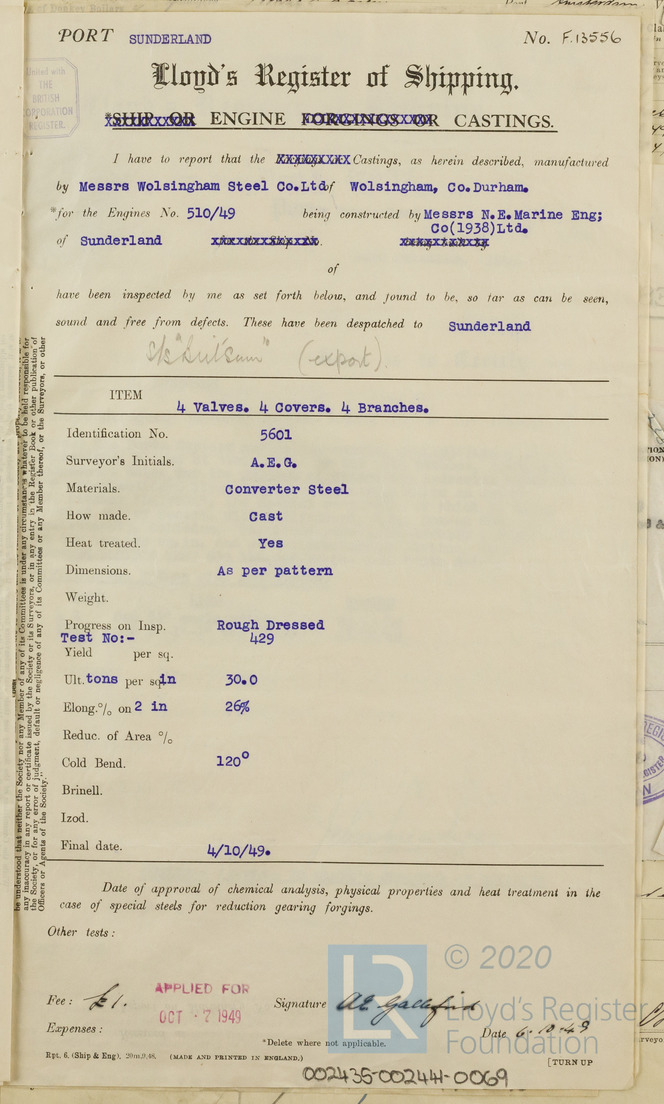 PORT SUNDERLAND No. F.13556
United with
THE
BRITISH
CORPORATION
REGISTER.
Lloyd's Register of Shipping.
*SHIP OR ENGINE FORGINGS OR CASTINGS.
I have to report that the Castings, as herein described, manufactured
by Messrs Wolsingham Steel Co.Ltd of Wolsingham, Co.Durham.
*for the Engines No. 510/49 being constructed by Messrs N.E.Marine Eng;
Co(1938)Ltd.
of Sunderland
of
have been inspected by me as set forth below, and found to be, so far as can be seen,
sound and free from defects. These have been despatched to Sunderland
(export).
ITEM
4 Valves. 4 Covers. 4 Branches.
Identification No. 5601
Surveyor's Initials. A.E.G.
Materials. Converter Steel
How made. Cast
Heat treated. Yes
Dimensions. As per pattern
Weight.
Progress on Insp. Rough Dressed
Test No:- 429
Yield per sq.
Ult. tons per sq in 30.0
Elong. % on 2 in 26%
Reduc. of Area %
Cold Bend. 120°
Brinell.
Izod.
Final date. 4/10/49.
be understood that neither the Society nor any Member of any of its Committees is under any circumstance whatever to be held responsible for
any inaccuracy in any report or certificate issued by the Society or its Surveyors, or in any entry in the Register Book or other publication of
the Society, or for any error of judgment, default or negligence of any of its Committees or any Member thereof, or the Surveyors, or other
Officers or Agents of the Society."
Date of approval of chemical analysis, physical properties and heat treatment in the
case of special steels for reduction gearing forgings.
Other tests :
© 2020
LR
Lloyd's Register
Foundation
Fee : £1. APPLIED FOR
OCT -7 1949
Signature
Expenses : Date 6-10-49
*Delete where not applicable.
Rpt. 6. (Ship & Eng). 20m,9,48. (MADE AND PRINTED IN ENGLAND.) [TURN UP
002435-002441-0069